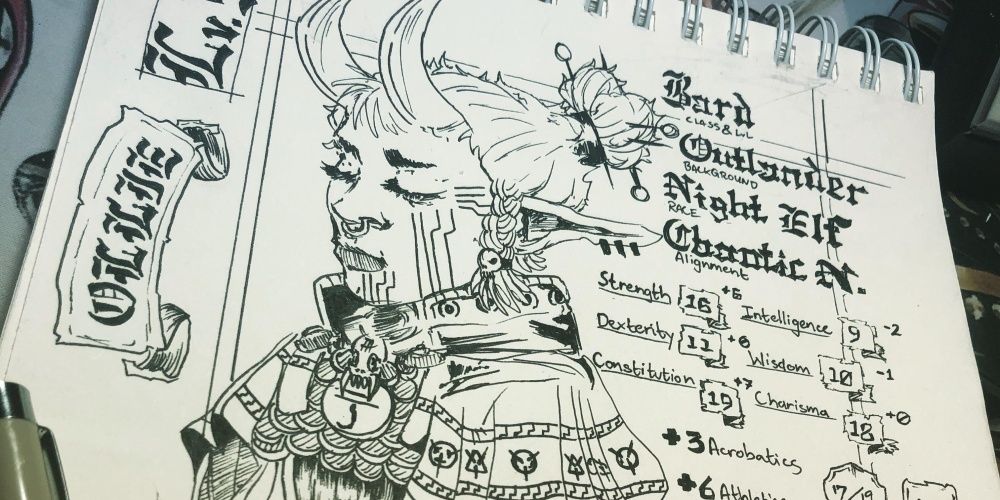 OLLIE
Bard
CLASS & LVL
Outlander
BACKGROUND
Night Elf
RACE
Chaotic N.
Alignment
Strength 16 +6
Intelligence 9 -2
Dexterity 11 +0
Wisdom 10 -1
Constitution 19 +7
Charisma 18 +0
+3 Acrobatics
+6 Athletics
7/19